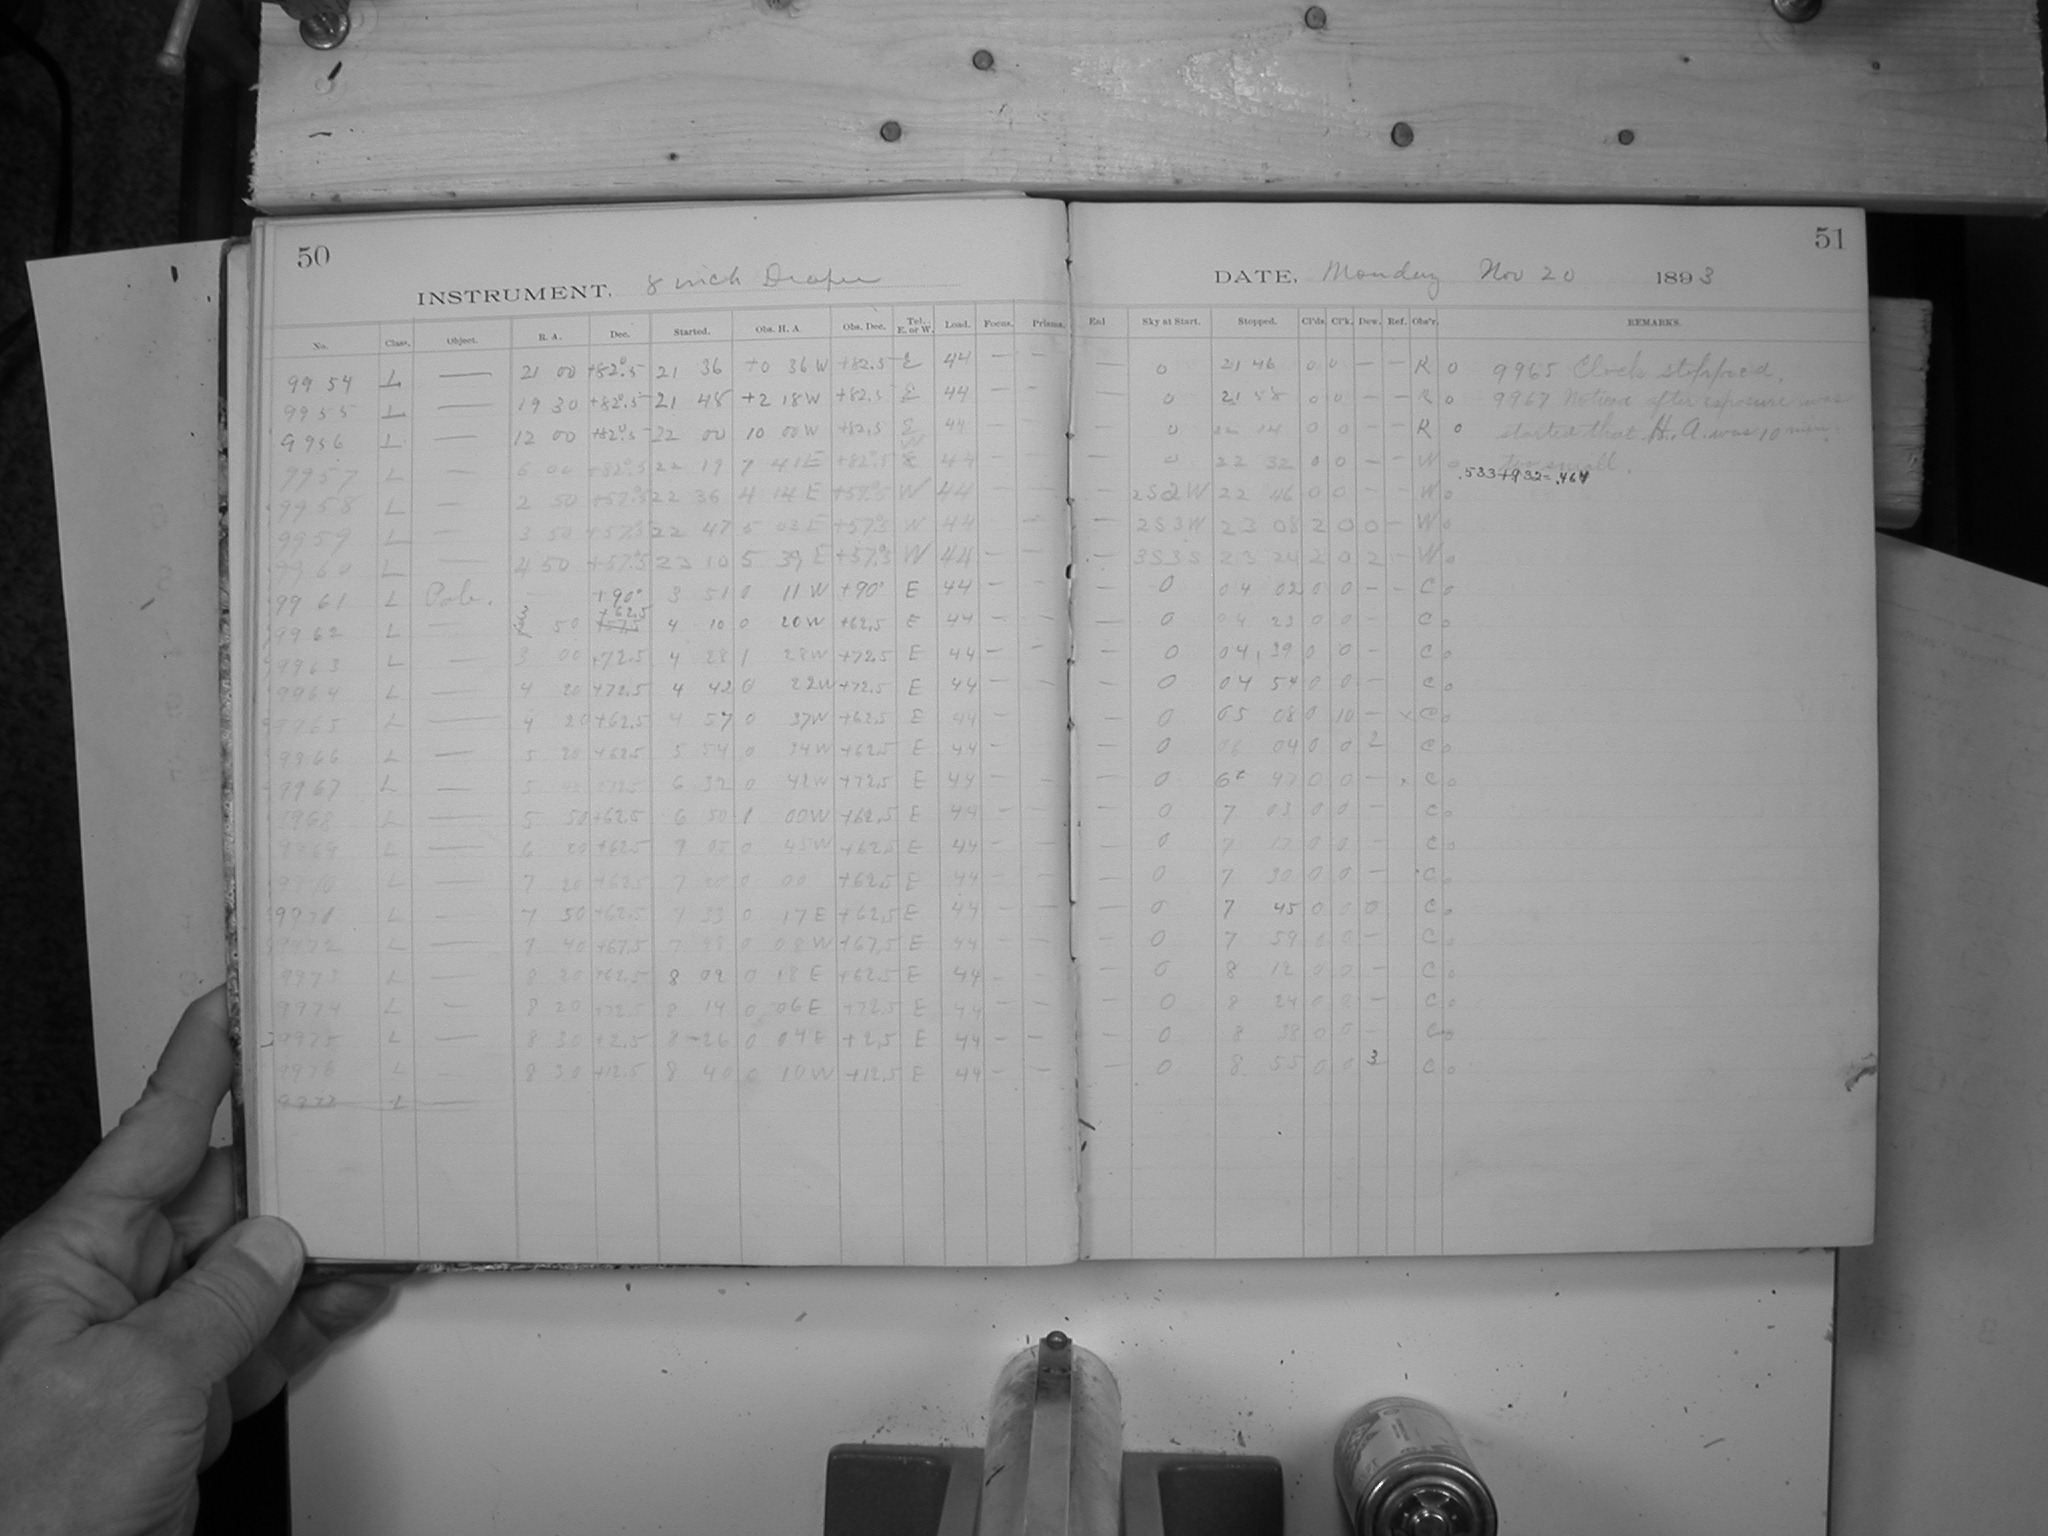 50
INSTRUMENT, 8 inch Draper
No. Class. Object. R. A. Dec. Started. Obs. H. A. Obs. Dec. Tel. E. or W. Load. Focus. Prisms.
9954 L — 21 00 +82°.5 21 36 +0 36 W +82.5 E 44 — —
9955 L — 19 30 +82°.5 21 48 +2 18 W +82.5 E 44 — —
9956 L — 12 00 +82°.5 22 00 10 00 W +82.5 E 44 — —
9957 L — 6 00 +82°.5 22 19 7 41 E +82°.5 W 44 — —
9958 L — 2 50 +57°.5 22 36 4 14 E +57°.5 W 44 — —
9959 L — 3 50 +57°.5 22 47 5 03 E +57°.5 W 44 — —
9960 L — 4 50 +57°.5 22 10 5 39 E +57°.5 W 44 — —
9961 L Pole. — +90° 3 51 0 11 W +90° E 44 — —
9962 L — 3 50 +62.5 4 10 0 20 W +62.5 E 44 — —
9963 L — 3 00 +72.5 4 28 1 28 W +72.5 E 44 — —
9964 L — 4 20 +72.5 4 42 0 22 W +72.5 E 44 — —
9965 L — 4 20 +62.5 4 57 0 37 W +62.5 E 44 — —
9966 L — 5 20 +62.5 5 54 0 34 W +62.5 E 44 —
9967 L — 5 +72.5 6 32 0 42 W +72.5 E 44 — —
9968 L — 5 50 +62.5 6 50 1 00 W +62.5 E 44 — —
9969 L — 6 20 +62.5 7 05 0 45 W +62.5 E 44 — —
9970 L — 7 20 +62.5 7 20 0 00 +62.5 E 44 — —
9971 L — 7 50 +62.5 7 33 0 17 E +62.5 E 44 — —
9972 L — 7 40 +67.5 7 48 0 08 W +67.5 E 44 — —
9973 L — 8 20 +62.5 8 02 0 18 E +62.5 E 44 — —
9974 L — 8 20 +72.5 8 14 0 06 E +72.5 E 44 — —
9975 L — 8 30 +2.5 8 26 0 04 E +2.5 E 44 — —
9976 L — 8 30 +12.5 8 40 0 10 W +12.5 E 44 — —
9977 L —
51
DATE, Monday Nov 20 1893
End Sky at Start. Stopped. Cl'ds. Cl'k. Dew. Ref. Obs'r. REMARKS.
— 0 21 46 0 0 — — R 0 9965 Clock stopped.
— 0 21 58 0 0 — — R 0 9967 Noticed after exposure was
— 0 22 14 0 0 — — R 0 started that H. A. was 10 min.
— 0 22 32 0 0 — — W 0 too small.
.533+932=.464
— 2S2W 22 46 0 0 — — W 0
— 2S3W 23 08 2 0 0 — W 0
— 3S3S 23 24 2 0 2 — W 0
— 0 04 02 0 0 — — C 0
— 0 04 23 0 0 — C 0
— 0 04 39 0 0 — C 0
— 0 04 54 0 0 — C 0
— 0 05 08 0 10 — x C 0
— 0 06 04 0 0 2 C 0
— 0 06 47 0 0 — x C 0
— 0 7 03 0 0 — C 0
— 0 7 17 0 0 — C 0
— 0 7 30 0 0 — C 0
— 0 7 45 0 0 0 C 0
— 0 7 59 0 0 — C 0
— 0 8 12 0 0 — C 0
— 0 8 24 0 0 — C 0
— 0 8 38 0 0 — C 0
— 0 8 55 0 0 3 C 0